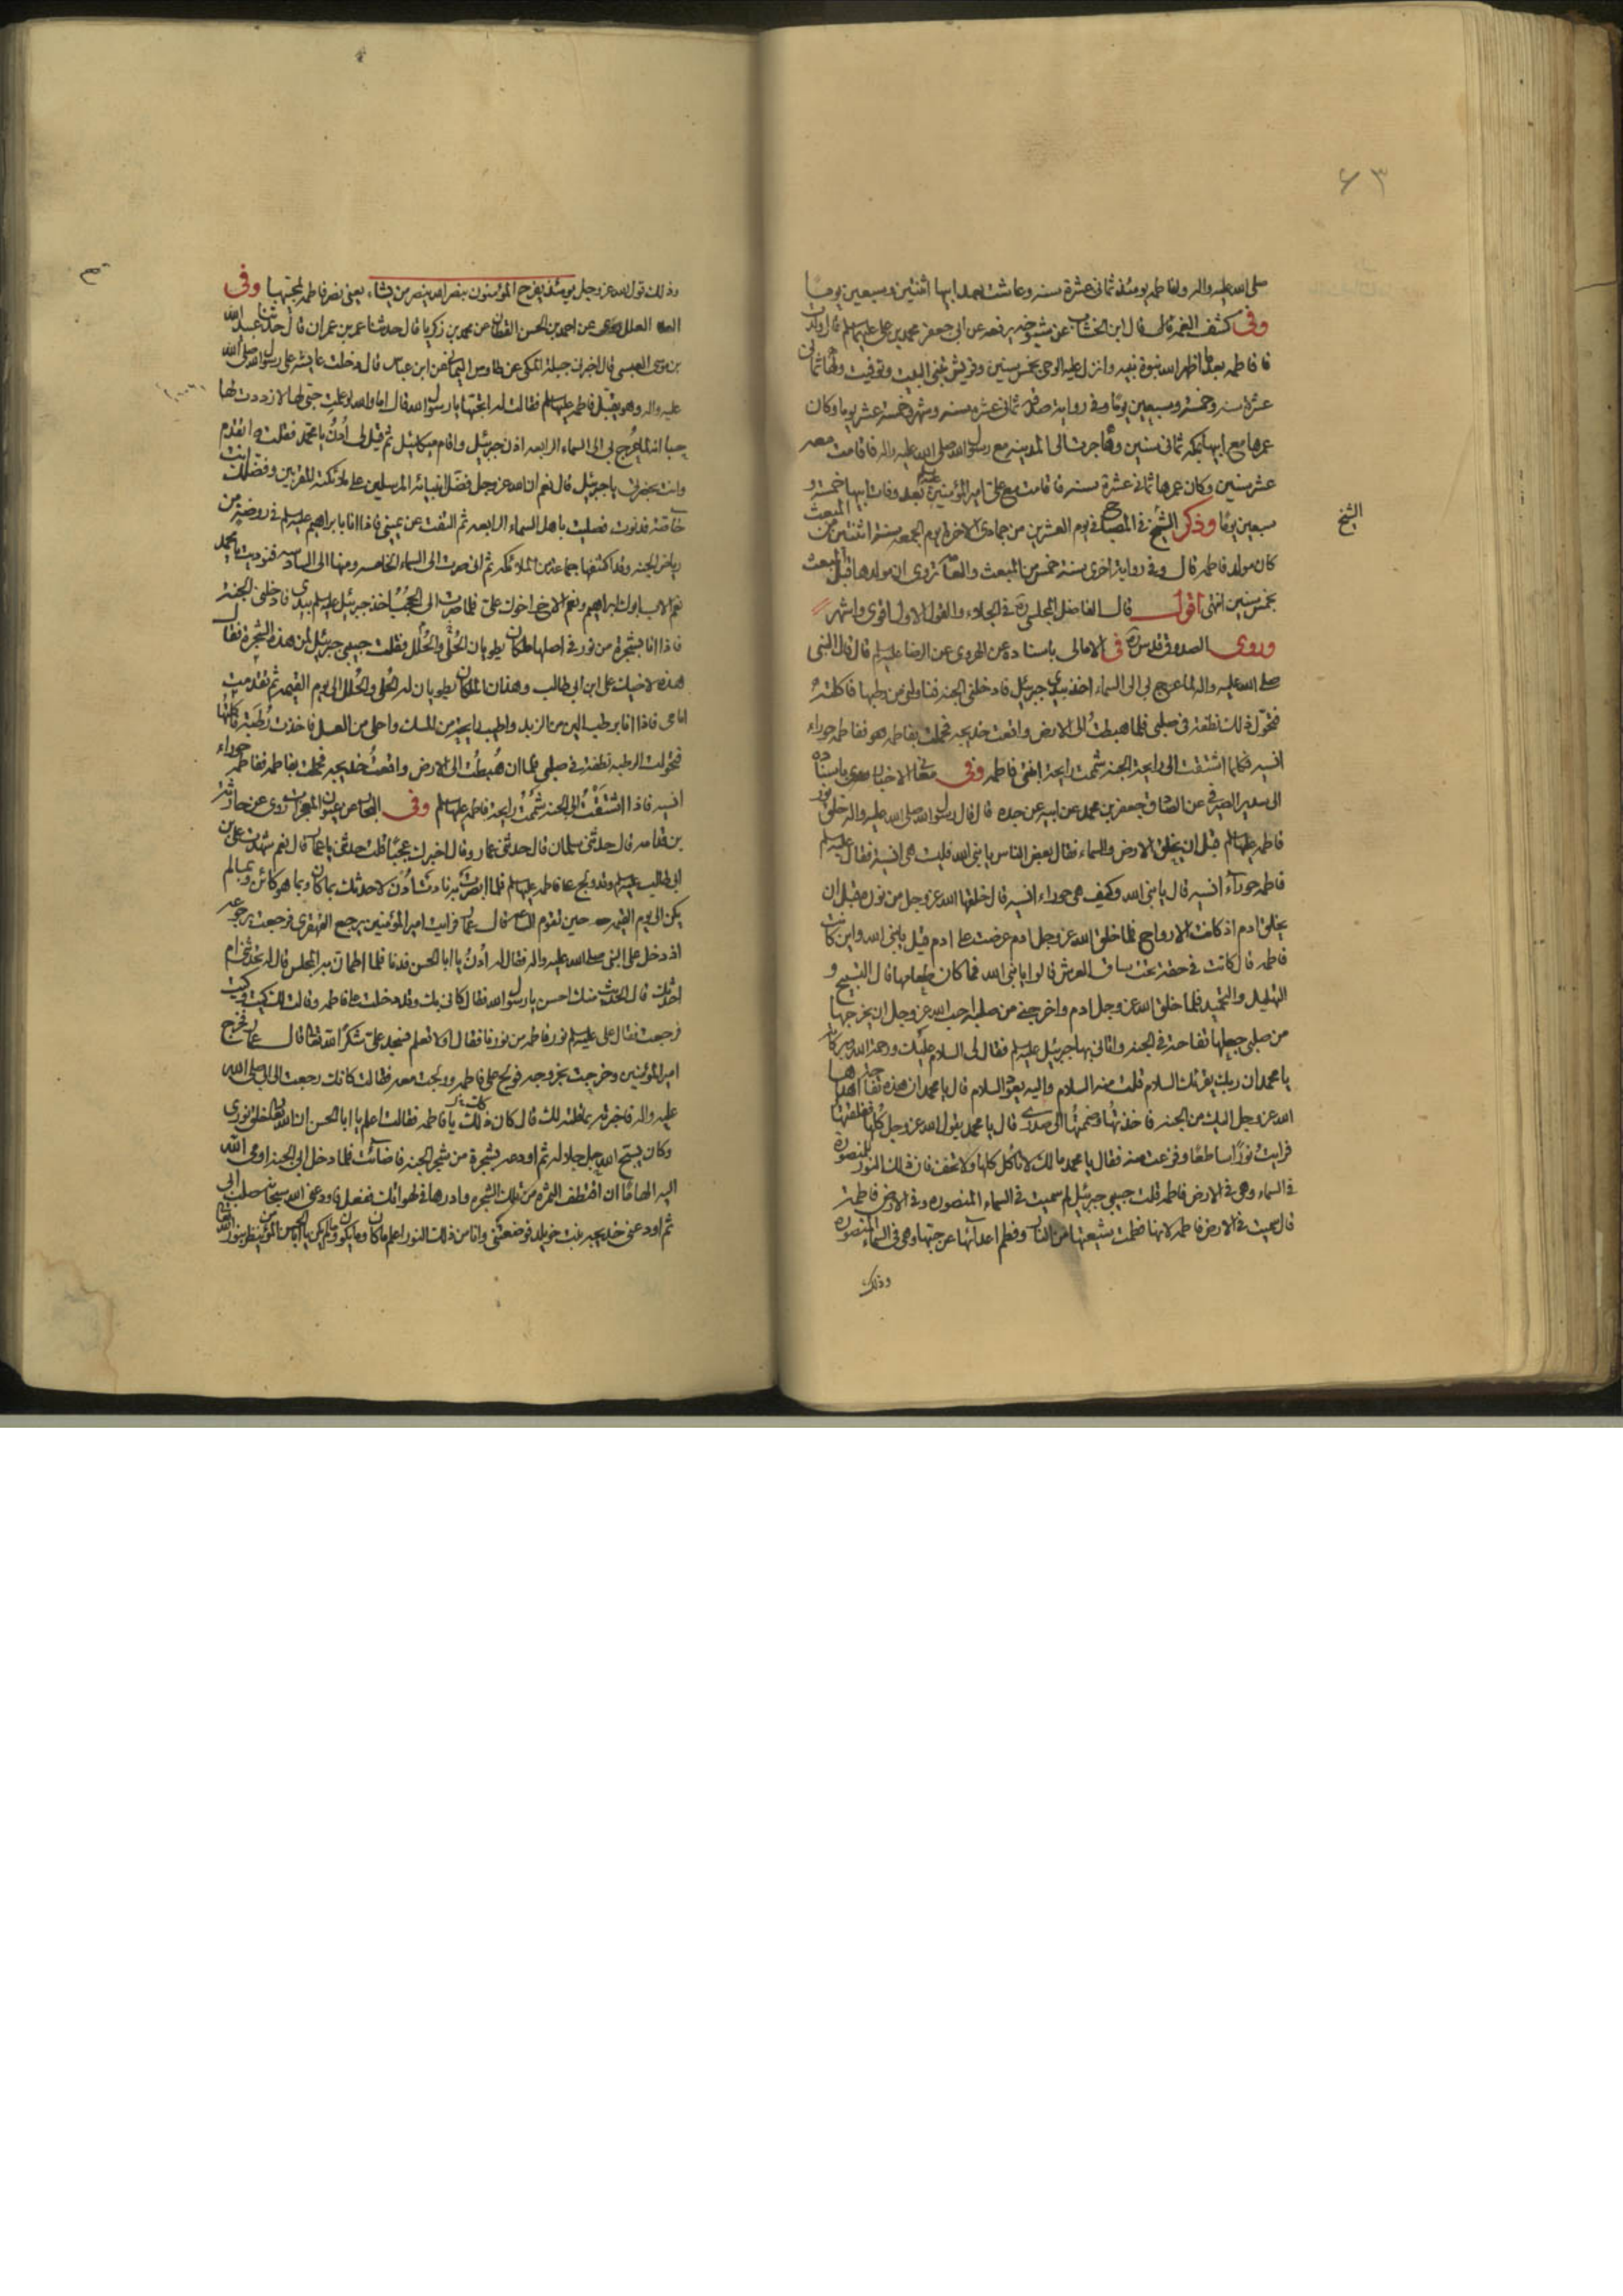 ٦٣
صلى الله عليه واله ولفاطمه يومئذ ثمانى عشرة سنه وعاشت بعد ابيها اثنتين وسبعين يومًا
وفى كشف الغمه قال قال ابن الخشاب عن شيوخه يرفعه عن ابى جعفر محمد بن على عليهما السلم قال ولدت
فاطمه بعد ما اظهر الله نبوة نبيه وانزل عليه الوحى بخمس سنين وقريش تبنى البيت وتوفيت ولها ثمانى
عشرة سنه وخمسة وسبعين يومًا وفى رواية صدقه ثمانى عشرة سنه وشهر وخمسة عشر يوما وكان
عمرها مع ابيها بمكه ثمانى سنين وهاجرت الى المدينه مع رسول الله صلى الله عليه واله فاقامت معه
عشر سنين وكان عمرها ثمانى عشرة سنه فاقامت مع على امير المؤمنين بعد وفات ابيها خمسة و
سبعين يومًا وذكر الشيخ فى المصباح فى يوم العشرين من جمادى الاخره يوم الجمعه سنة اثنتين من المبعث
الشيخ
كان مولد فاطمه قال وفى رواية اخرى سنة خمس من المبعث والعامه تروى ان مولدها قبل المبعث
بخمس سنين انتهى اقول قال الفاضل المجلسى ره فى الجلاء والقول الاول اقوى واشهر
وروى الصدوق قدس سره فى الامالى باسناده عن الهروى عن الرضا عليه السلم قال قال النبى
صلى الله عليه واله لما عرج بى الى السماء اخذ بيدى جبرئيل فادخلنى الجنه فناولنى من رطبها فاكلته
فتحول ذلك نطفة فى صلبى فلما هبطت الى الارض واقعت خديجه فحملت بفاطمه ففاطمه حوراء
انسيه فكلما اشتقت الى رايحة الجنه شممت رايحة ابنتى فاطمه وفى معانى الاخبار باسناده
الى سدير الصيرفى عن الصادق جعفر بن محمد عن ابيه عن جده قال قال رسول الله صلى الله عليه واله خلق نور
فاطمه عليها السلم قبل ان يخلق الارض والسماء فقال بعض الناس يا نبى الله فليست هى انسية فقال عليه السلم
فاطمه حوراء انسيه قال يا نبى الله وكيف هى حوراء انسيه قال خلقها الله عز وجل من نوره قبل ان
يخلق ادم اذ كانت الارواح فلما خلق الله عز وجل ادم عرضت على ادم قيل يا نبى الله واين كانت
فاطمه قال كانت فى حقة تحت ساق العرش قالوا يا نبى الله فما كان طعامها قال التسبيح و
التهليل والتحميد فلما خلق الله عز وجل ادم واخرجنى من صلبه احب الله عز وجل ان يخرجها
من صلبى جعلها تفاحة فى الجنه واتانى بها جبرئيل عليه السلم فقال لى السلام عليك ورحمة الله وبركاته
يا محمد ان ربك يقرئك السلام قلت منه السلام واليه يعود السلام قال يا محمد ان هذه تفاحة اهداها
الله عز وجل اليك من الجنه فاخذتها وضممتها الى صدرى قال يا محمد يقول الله عز وجل كلها ففلقتها
فرايت نورًا ساطعًا وفزعت منه فقال يا محمد مالك لا تاكل كلها ولا تخف فان ذلك النور للمنصوره
فى السماء وهى فى الارض فاطمه قلت حبيبى جبرئيل لم سميت فى السماء المنصوره وفى الارض فاطمة
قال سميت فى الارض فاطمه لانها فطمت شيعتها من النار وفطم اعدائها عن حبها وهى فى السماء المنصوره
وذلك
وذلك قول الله عز وجل يومئذ يفرح المؤمنون بنصر الله ينصر من يشاء يعنى نصر فاطمه لمحبيها وفى
العلل عن احمد بن الحسن القطان عن محمد بن زكريا قال حدثنا عمر بن عمران قال حدثنا عبيد الله
بن موسى العبسى قال اخبرنى جبلة المكى عن طاوس اليمانى عن ابن عباس قال دخلت عايشه على رسول الله صلى الله
عليه واله وهو يقبل فاطمه عليها السلم فقالت له اتحبها يا رسول الله قال اما والله لو علمت حبى لها لازددت لها
حبا انه لما عرج بى الى السماء الرابعه اذن جبرئيل واقام ميكائيل ثم قيل لى ادن يا محمد فقلت اتقدم
وانت بحضرتى يا جبرئيل قال نعم ان الله عز وجل فضل انبيائه المرسلين على ملائكته المقربين وفضلك انت
خاصة فدنوت فصليت باهل السماء الرابعه ثم التفت عن يمينى فاذا انا بابراهيم عليه السلم فى روضة من
رياض الجنه وقد اكتنفها جماعة من الملائكه ثم انى صرت الى السماء الخامسه ومنها الى السادسه فنوديت يا محمد
نعم الاب ابوك ابراهيم ونعم الاخ اخوك على فلما صرت الى الحجب اخذ جبرئيل عليه السلم بيدى فادخلنى الجنة
فاذا انا بشجرة من نور فى اصلها ملكان يطويان الحلى والحلل فقلت حبيبى جبرئيل لمن هذه الشجرة فقال
هذه لاخيك على ابن ابى طالب وهذان الملكان يطويان له الحلى والحلل الى يوم القيمه ثم تقدمت
امامى فاذا انا برطب الين من الزبد واطيب رايحة من المسك واحلى من العسل فاخذت رطبة فاكلتها
فتحولت الرطبه نطفة فى صلبى فلما ان هبطت الى الارض واقعت خديجه فحملت بفاطمه ففاطمه حوراء
انسيه فاذا اشتقت الى الجنه شممت رايحة فاطمه عليها السلم وفى البحار عن عيون المعجزات روى عن حارثة
بن قدامه قال حدثنى سلمان قال حدثنى عمار وقال اخبرك عجبًا قلت حدثنى يا عمار قال نعم شهدت على بن
ابى طالب عليه السلم وقد ولج على فاطمه عليها السلم فلما ابصرت به نادت ادن لاحدثك بما كان وبما هو كائن وبما لم
يكن الى يوم القيمه حين تقوم الساعه قال عمار فرايت امير المؤمنين يرجع القهقرى فرجعت برجوعه
اذ دخل على النبى صلى الله عليه واله فقال له ادن يا ابا الحسن فدنا فلما اطمان به المجلس قال له تحدثنى ام
احدثك قال الحديث منك احسن يا رسول الله فقال كانى بك وقد دخلت على فاطمه وقالت لك كيت وكيت
فرجعت فقال على عليه السلم نور فاطمه من نورنا فقال اولا تعلم فسجد على شكرًا لله تعالى قال عمار فخرج
امير المؤمنين وخرجت بخروجه فولج على فاطمه وولجت معه فقالت كانك رجعت الى ابى صلى الله
عليه واله فاخبرته بما قلته لك قال كان ذلك يا فاطمه فقالت اعلم يا ابا الحسن ان الله تعالى خلق نورى
وكان يسبح الله جل جلاله ثم اودعه بشجرة من شجر الجنه فاضائت فلما دخل ابى الجنه اوحى الله
اليه الهامًا ان اقتطف الثمره من تلك الشجره وادرها فى لهواتك ففعل فاودعنى الله سبحانه صلب ابى
ثم اودعنى خديجه بنت خويلد فوضعتنى وانا من ذلك النور اعلم ما كان وما يكون وما لم يكن يا ابا الحسن المؤمن ينظر بنور الله